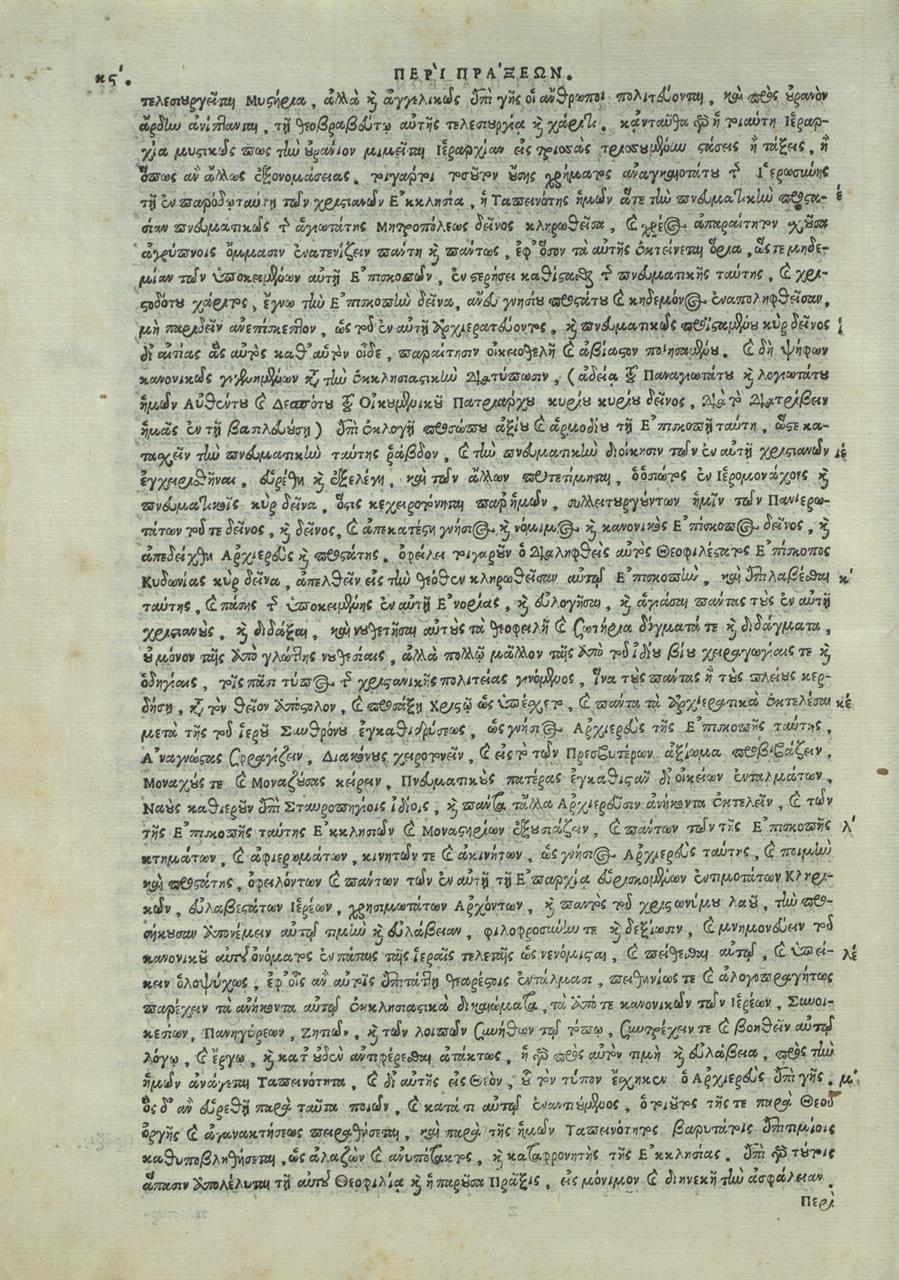 κϛʹ. ΠΕΡῚ ΠΡΆΞΕΩΝ.
τελεσιουργεῖται Μυστήρια, ἀλλὰ καὶ ἀγγελικῶς ἐπὶ γῆς οἱ ἄνθρωποι πολιτεύονται, καὶ πρὸς οὐρανὸν
ἄρδην ἀνίπτανται, τῇ θεοβραβεύτῳ αὐτῆς τελεσιουργίᾳ καὶ χάριτι. κᾀνταῦθα γὰρ ἡ τοιαύτη Ἱεραρ-
χία μυστικῶς πως τὴν οὐράνιον μιμεῖται Ἱεραρχίαν εἰς τρισσὰς στάσεις ἢ τάξεις, ἢ
ὅπως ἂν ἄλλως ἐξονομάσειας. τοιγάρτοι τούτου ὕσης χρήματος ἀναγκαιοτάτου τῆς Ἱερωσύνης
τῇ ἐν παρόδῳ ταύτῃ τῶν χριστιανῶν Ἐκκλησίᾳ, ἡ Ταπεινότης ἡμῶν ἅτε τὴν πνευματικὴν προστα- έ
σίαν πνευματικῶς τῆς ἁγιωτάτης Μητροπόλεως δεῖνος κληρωθεῖσα, καὶ χρέος ἀπαραίτητον ἔχουσα
ἀγρύπνοις ὄμμασιν ἐνατενίζειν πάντη καὶ πάντως, ἐφ' ὅσον τὰ αὐτῆς ἐκτείνεται ὅρια, ὥστε μηδε-
μίαν τῶν ὑποκειμένων αὐτῇ Ἐπισκοπῶν, ἐν στερήσει καθίστασθαι τῆς πνευματικῆς ταύτης, καὶ χρι-
στοδότου χάριτος, ἔγνω τὴν Ἐπισκοπὴν δεῖνα, ἄνευ γνησίου προστάτου καὶ κηδεμόνος ἐναποληφθεῖσαν,
μὴ παριδεῖν ἀνεπίσκεπτον, ὡς τοῦ ἐν αὐτῇ Ἀρχιερατεύοντος, καὶ πνευματικῶς προϊσταμένου κὺρ δεῖνος ί
δι' αἰτίας ἃς αὐτὸς καθ' αὑτὸν οἶδε, παραίτησιν οἰκειοθελῆ καὶ ἀβίαστον ποιησαμένου. καὶ δὴ ψήφων
κανονικῶς γενομένων κατὰ τὴν ἐκκλησιαστικὴν διατύπωσιν, (ἀδείᾳ τοῦ Παναγιωτάτου καὶ λογιωτάτου
ἡμῶν Αὐθέντου καὶ Δεσπότου τοῦ Οἰκουμενικοῦ Πατριάρχου κυρίου κυρίου δεῖνος, διὰ τὸ διατρίβειν
ἡμᾶς ἐν τῇ βασιλευούσῃ) ἐπὶ ἐκλογῇ προσώπου ἀξίου καὶ ἁρμοδίου τῇ Ἐπισκοπῇ ταύτῃ, ὥστε κα-
τασχεῖν τὴν πνευματικὴν ταύτης ῥάβδον, καὶ τὴν πνευματικὴν διοίκησιν τῶν ἐν αὐτῇ χριστιανῶν ιέ
ἐγχειρισθῆναι, εὑρέθη καὶ ἐξελέγη, καὶ τῶν ἄλλων προτετίμηται, ὁ ὁσιώτατος ἐν Ἱερομονάχοις καὶ
πνευματικοῖς κὺρ δεῖνα, ὅστις κεχειροτόνηται παρ' ἡμῶν, συλλειτουργούντων ἡμῖν τῶν Πανιερω-
τάτων τοῦ τε δεῖνος, καὶ δεῖνος, καὶ ἀπεκατέστη γνήσιος καὶ νόμιμος καὶ κανονικὸς Ἐπίσκοπος δεῖνος, καὶ
ἀπεδείχθη Ἀρχιερεὺς καὶ προστάτης. ὀφείλει τοιγαροῦν ὁ διαληφθεὶς αὐτὸς Θεοφιλέστατος Ἐπίσκοπος
Κυδωνίας κὺρ δεῖνα, ἀπελθεῖν εἰς τὴν θεόθεν κληρωθεῖσαν αὐτῷ Ἐπισκοπὴν, καὶ ἐπιλαβέσθαι κʹ
ταύτης, καὶ πάσης τῆς ὑποκειμένης ἐν αὐτῇ Ἐνορίας, καὶ εὐλογῆσαι, καὶ ἁγιάσαι πάντας τοὺς ἐν αὐτῇ
χριστιανοὺς, καὶ διδάξαι, καὶ νουθετῆσαι αὐτοὺς τὰ θεοφιλῆ καὶ Σωτήρια δόγματά τε καὶ διδάγματα,
οὐ μόνον ταῖς ἀπὸ γλώττης νουθεσίαις, ἀλλὰ πολλῷ μᾶλλον ταῖς ἀπὸ τοῦ ἰδίου βίου χειραγωγίαις τε καὶ
ὁδηγίαις, τοῖς πᾶσι τύπος τῆς χριστιανικῆς πολιτείας γινόμενος, ἵνα τοὺς πάντας ἢ τοὺς πλείους κερ-
δήσῃ, κατὰ τὸν θεῖον Ἀπόστολον, καὶ προσάξῃ Χριστῷ ὡς ὑπέσχετο, καὶ πάντα τὰ Ἀρχιερατικὰ ἐκτελέσαι κέ
μετὰ τῆς τοῦ ἱεροῦ Συνθρόνου ἐγκαθιδρύσεως, ὡς γνήσιος Ἀρχιερεὺς τῆς Ἐπισκοπῆς ταύτης,
Ἀναγνώστας Σφραγίζειν, Διακόνους χειροτονεῖν, καὶ εἰς τὸ τῶν Πρεσβυτέρων ἀξίωμα προβιβάζειν,
Μοναχούς τε καὶ Μοναζούσας κείρειν, Πνευματικοὺς πατέρας ἐγκαθιστᾷν δι' οἰκείων ἐνταλμάτων,
Ναοὺς καθιεροῦν ἐπὶ Σταυροπηγίοις ἰδίοις, καὶ πάντα τἄλλα Ἀρχιερεῦσιν ἀνήκοντα ἐκτελεῖν, καὶ τῶν
τῆς Ἐπισκοπῆς ταύτης Ἐκκλησιῶν καὶ Μοναστηρίων ἐξουσιάζειν, καὶ πάντων τῶν τῆς Ἐπισκοπῆς λʹ
κτημάτων, καὶ ἀφιερωμάτων, κινητῶν τε καὶ ἀκινήτων, ὡς γνήσιος Ἀρχιερεὺς ταύτης, καὶ ποιμὴν
καὶ προστάτης, ὀφειλόντων καὶ πάντων τῶν ἐν αὐτῇ τῇ Ἐπαρχίᾳ εὑρισκομένων ἐντιμοτάτων Κληρι-
κῶν, εὐλαβεστάτων Ἱερέων, χρησιμωτάτων Ἀρχόντων, καὶ παντὸς τοῦ χριστωνύμου λαοῦ, τὴν προσ-
ήκουσαν ἀπονέμειν αὐτῷ τιμὴν καὶ εὐλάβειαν, φιλοφροσύνην τε καὶ δεξίωσιν, καὶ μνημονεύειν τοῦ
κανονικοῦ αὐτοῦ ὀνόματος ἐν πάσαις ταῖς ἱεραῖς τελεταῖς ὡς νενόμισται, καὶ πείθεσθαι αὐτῷ, καὶ ὑπεί- λέ
κειν ὁλοψύχως, ἐφ' οἷς ἂν αὐτοῖς ἐπιτάττῃ θεαρέστοις ἐντάλμασι, πειθηνίως τε καὶ ἀλογοπραγήτως
παρέχειν τὰ ἀνήκοντα αὐτῷ ἐκκλησιαστικὰ δικαιώματα, τὰ ἀπό τε κανονικῶν τῶν Ἱερέων, Συνοι-
κεσίων, Πανηγύρεων, Ζητιῶν, καὶ τῶν λοιπῶν συνήθων τῷ τόπῳ, συντρέχειν τε καὶ βοηθεῖν αὐτῷ
λόγῳ, καὶ ἔργῳ, καὶ κατ' οὐδὲν ἀντιφέρεσθαι ἀτάκτως, ἡ γὰρ πρὸς αὐτὸν τιμὴ καὶ εὐλάβεια, πρὸς τὴν
ἡμῶν ἀνάγεται Ταπεινότητα, καὶ δι' αὐτῆς εἰς Θεὸν, οὗ τὸν τύπον ἔσχηκεν ὁ Ἀρχιερεὺς ἐπὶ γῆς. μʹ
ὃς δ' ἂν εὑρεθῇ παρὰ ταῦτα ποιῶν, καὶ κατά τι αὐτῷ ἐναντιούμενος, ὁ τοιοῦτος τῆς τε παρὰ Θεοῦ
ὀργῆς καὶ ἀγανακτήσεως πειραθήσεται, καὶ παρὰ τῆς ἡμῶν Ταπεινότητος βαρυτάτοις ἐπιτιμίοις
καθυποβληθήσεται, ὡς ἀλαζὼν καὶ ἀνυπότακτος, καὶ καταφρονητὴς τῆς Ἐκκλησίας. ἐπὶ γὰρ τούτοις
ἅπασιν ἀπολέλυται τῇ αὐτοῦ Θεοφιλίᾳ καὶ ἡ παροῦσα Πρᾶξις, εἰς μόνιμον καὶ διηνεκῆ τὴν ἀσφάλειαν.
Περὶ